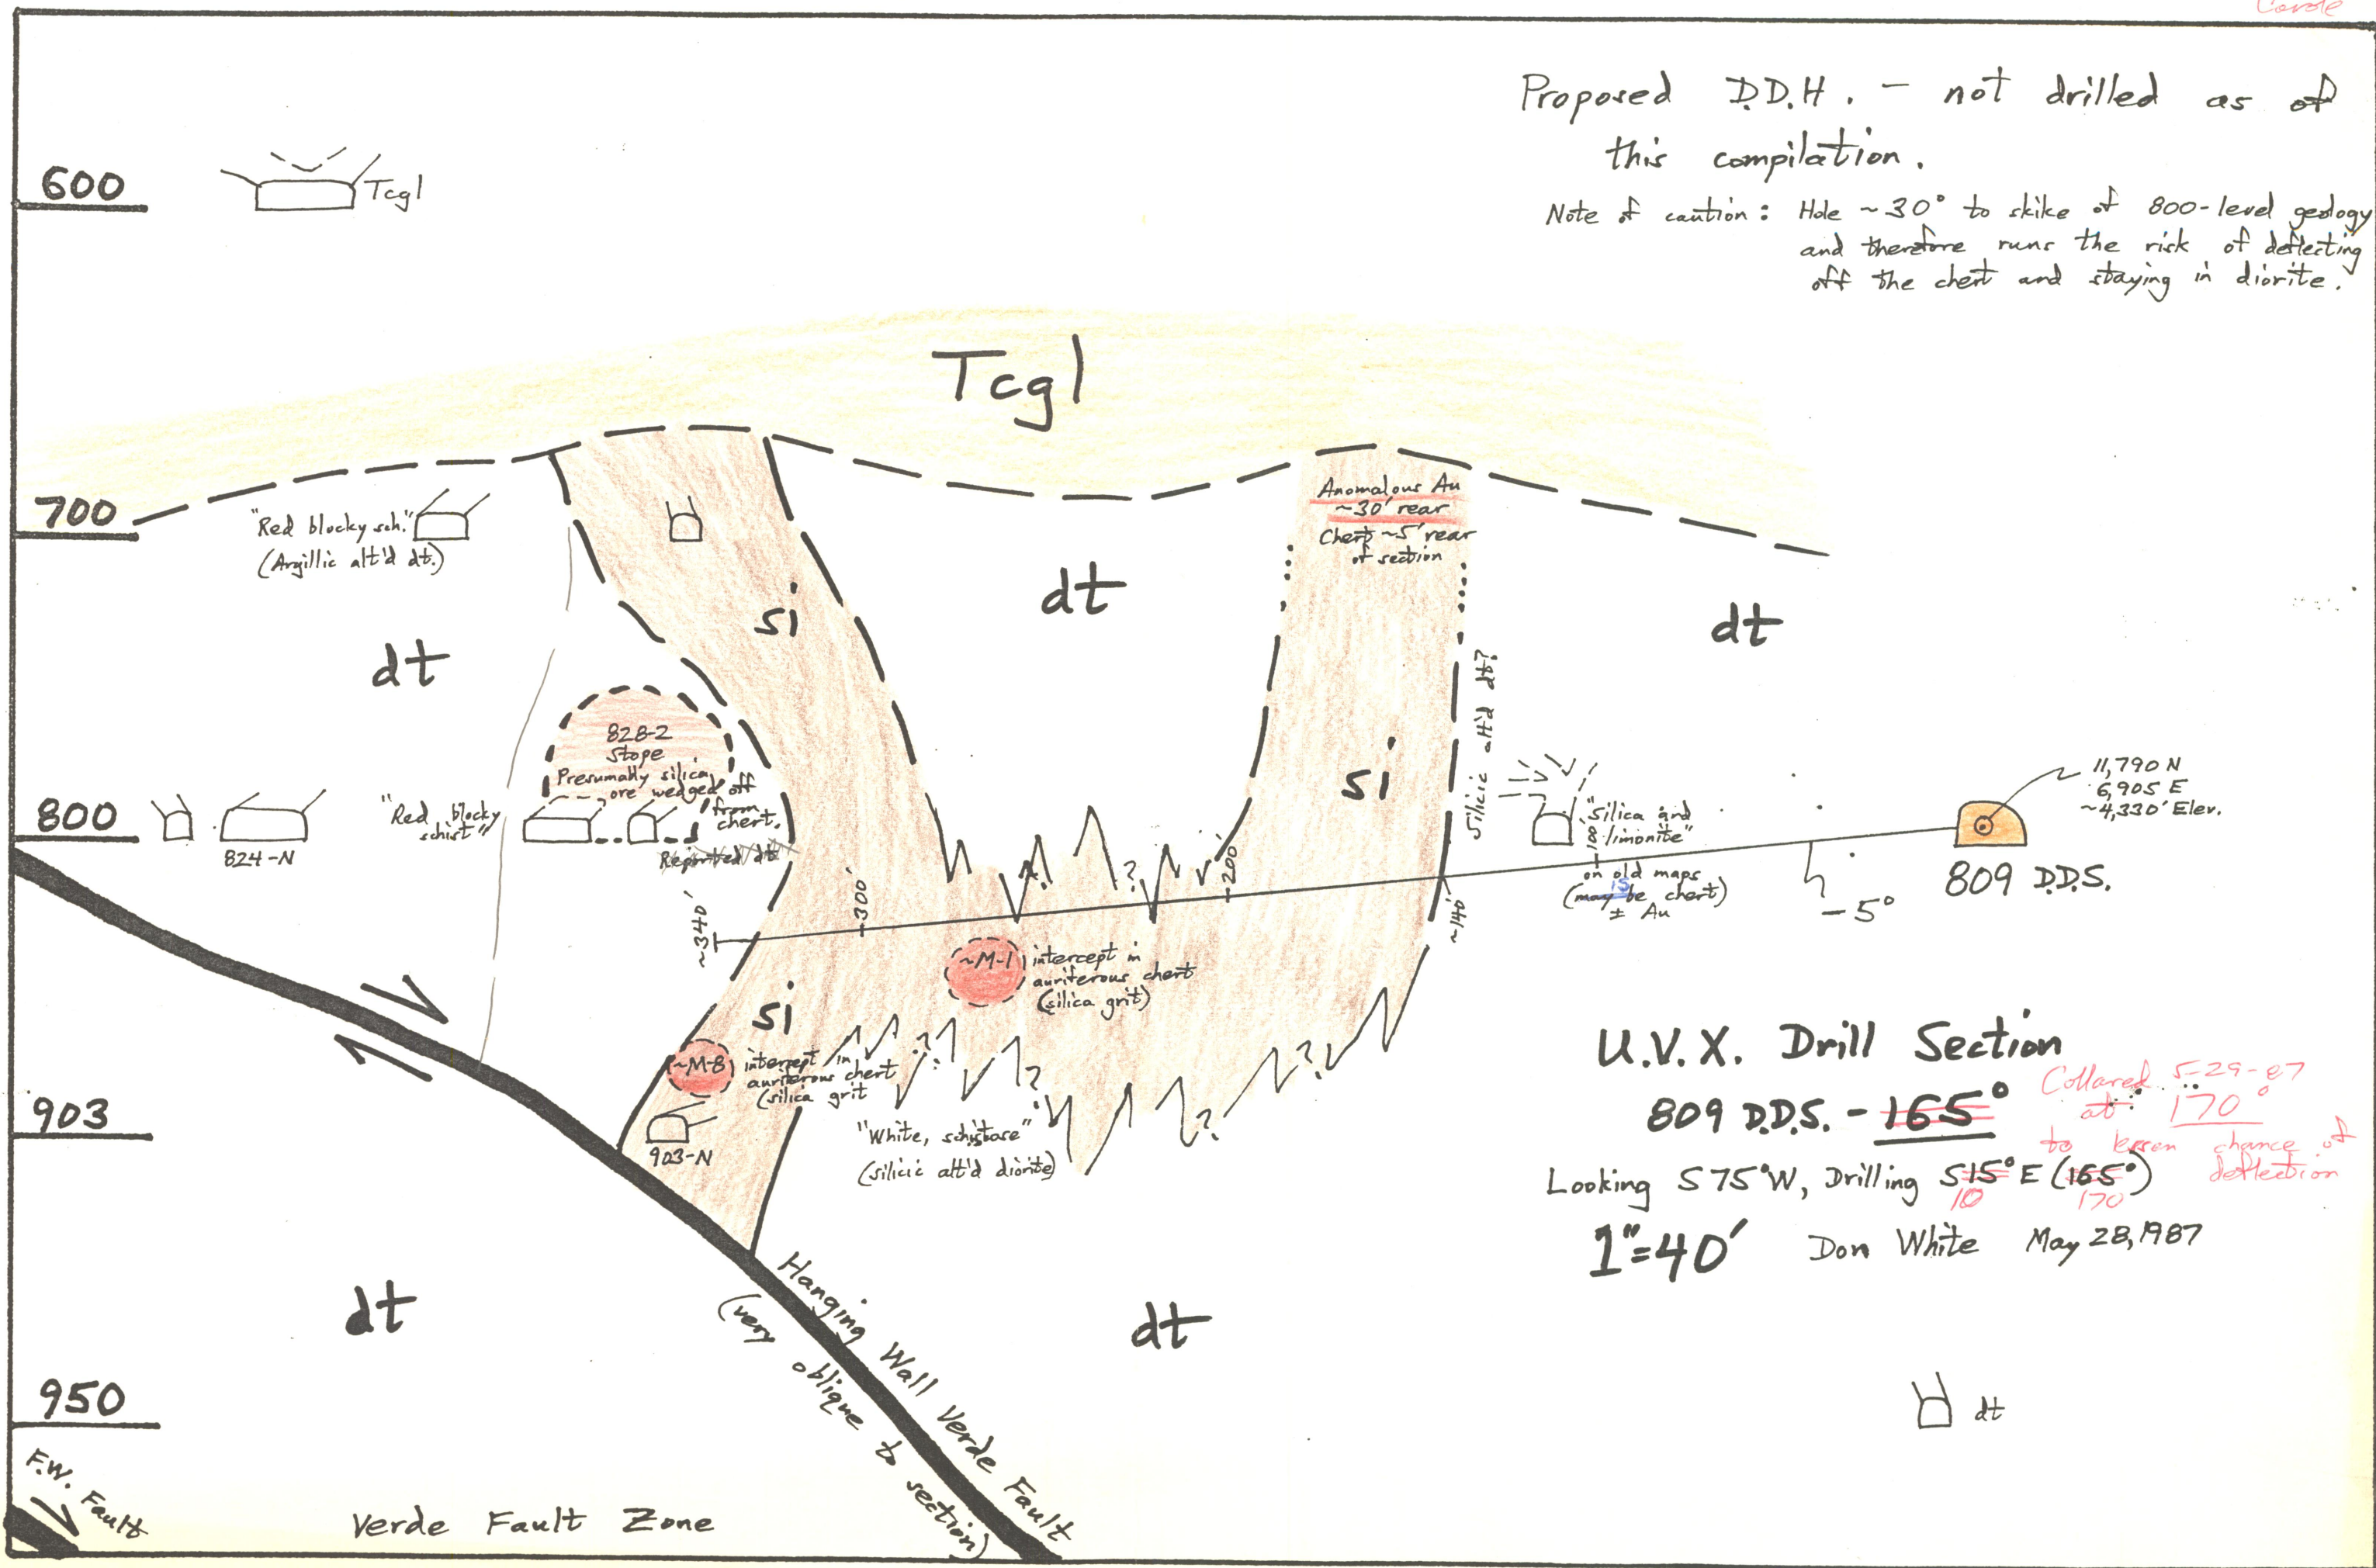 Carole
Proposed D.D.H. - not drilled as of
this compilation.
Note of caution: Hole ~30° to skike of 800-level geology
and therefore runs the risk of deflecting
off the chert and staying in diorite.
600
Tcgl
Tcgl
700
"Red blocky sch."
(Argillic alt'd dt.)
si
dt
Anomalous Au
~30' rear
Chert ~5' rear
of section
dt
dt
828-2
Stope
Presumably silica
ore wedged off
from
chert.
Reported dt
si
Silicic alt'd dt?
"Silica and
limonite"
on old maps
(may be chert)
is
± Au
100'
11,790 N
6,905 E
~4,330' Elev.
809 D.D.S.
-5°
800
824-N
"Red blocky
schist"
~340'
300'
?
?
200'
~140'
~M-1
intercept in
auriferous chert
(silica grit)
si
~M-8
intercept in
auriferous chert
(silica grit
?
?
?
?
903
903-N
"White, schistose"
(silicic alt'd diorite)
U.V.X. Drill Section
809 D.D.S. - 165°
Collared 5-29-87
at 170°
to lessen chance of
deflection
Looking S75°W, Drilling S15°E (165°)
10 170
1"=40' Don White May 28, 1987
dt
dt
Hanging Wall Verde Fault
(very oblique to section)
950
dt
F.W. Fault
Verde Fault Zone